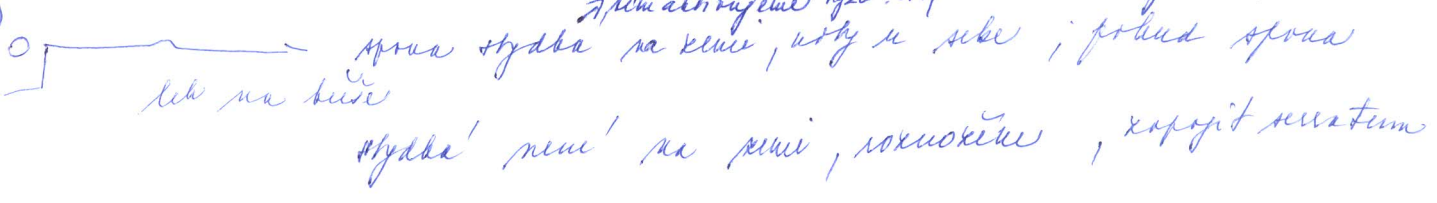 spona stydká na zemi, nohy u sebe ; pokud spona
leh na břiše
stydká není na zemi, roznožíme, zapojit serratum